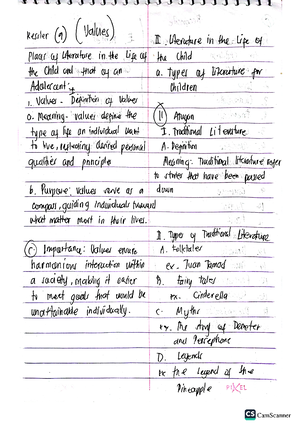 Kesiler (a) (Values)
Places of Literature in the Life of
the Child and that of an
Adolescents
1. Values - Definition of Values
a. Meaning - Values define the
type of life an individual want
to live, reflecting desired personal
qualities and principle
b. Purpose: Values serve as a
compass, guiding individuals toward
what matter most in their lives.
c. Importance: Values ensure
harmonious interaction within
a society, making it easier
to meet goals that would be
unattainable individually.
II. Literature in the Life of
the Child
a. Types of Literature for
Children
(11) Anyon
I. Traditional Literature
A. Definition
Meaning - Traditional literature refer
to stories that have been passed
down
II. Types of Traditional Literature
A. folktales
ex. Juan Tamad
B. fairy tales
ex. Cinderella
C. Myths
ex. The story of Demeter
and Persephone
D. Legends
ex the Legend of the
Pineapple
CS CamScanner